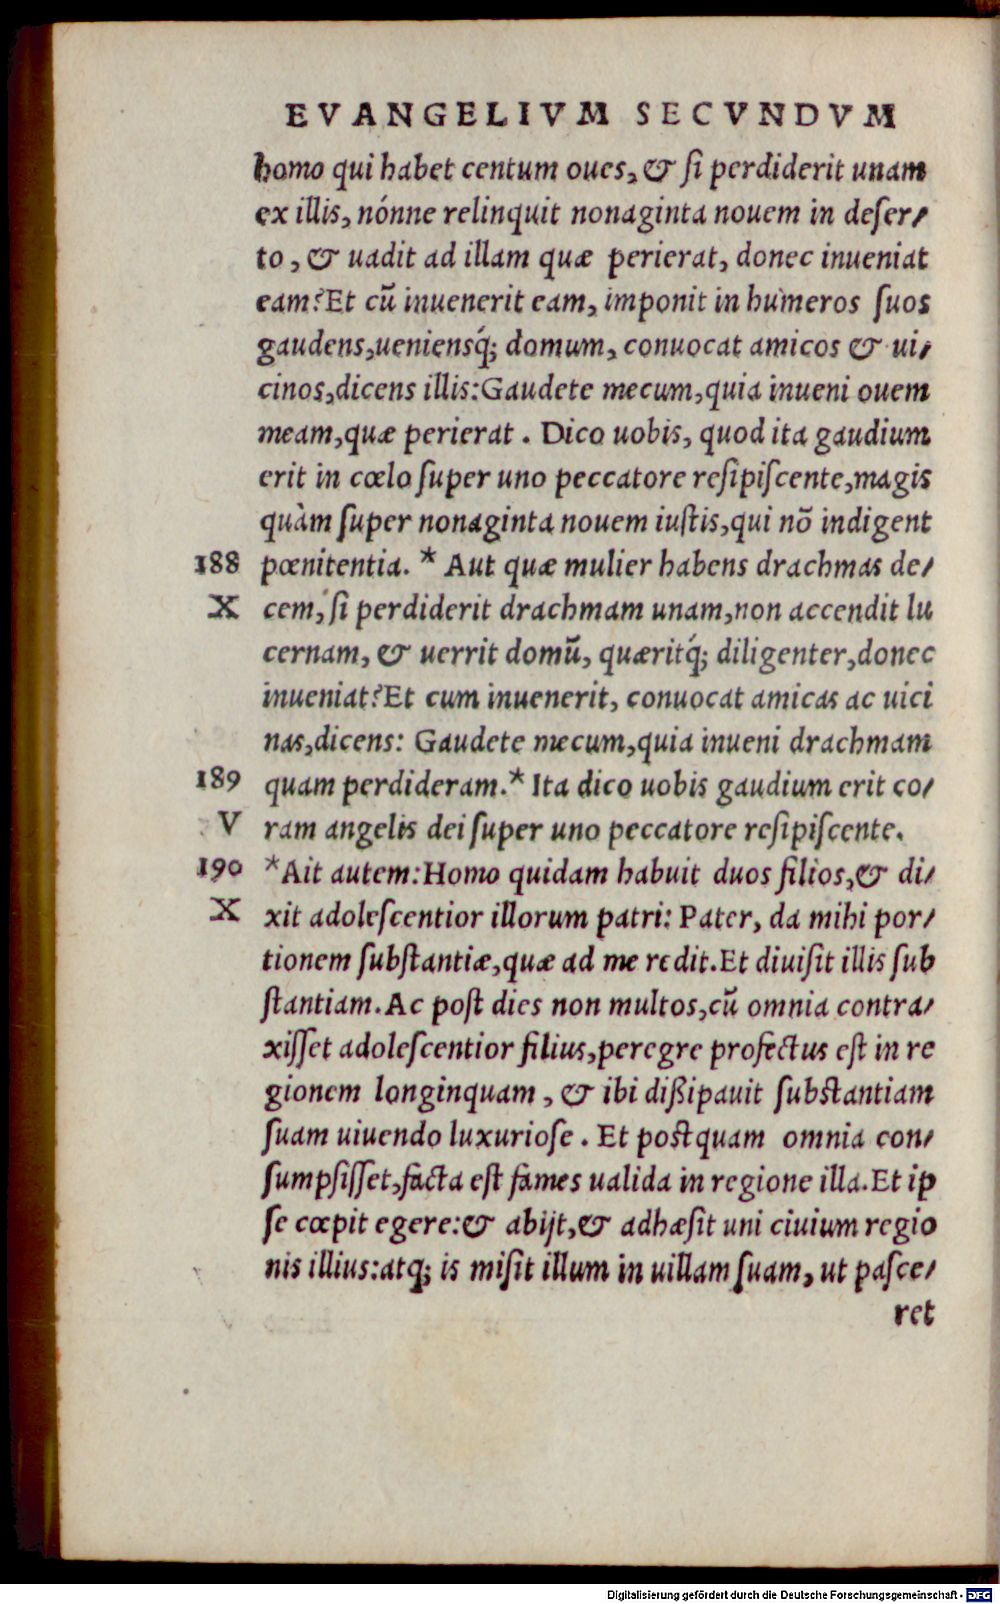 EVANGELIVM SECVNDVM
homo qui habet centum oues, & ſi perdiderit unam
ex illis, nónne relinquit nonaginta nouem in deſer/
to, & uadit ad illam quæ perierat, donec inueniat
eam? Et cũ inuenerit eam, imponit in humeros ſuos
gaudens, ueniensq́; domum, conuocat amicos & ui/
cinos, dicens illis: Gaudete mecum, quia inueni ouem
meam, quæ perierat. Dico uobis, quod ita gaudium
erit in cœlo ſuper uno peccatore reſipiſcente, magis
quàm ſuper nonaginta nouem iuſtis, qui nõ indigent
188 pœnitentia. * Aut quæ mulier habens drachmas de/
X cem, ſi perdiderit drachmam unam, non accendit lu
cernam, & uerrit domũ, quæritq́; diligenter, donec
inueniat? Et cum inuenerit, conuocat amicas ac uici
nas, dicens: Gaudete mecum, quia inueni drachmam
189 quam perdideram. * Ita dico uobis gaudium erit co/
V ram angelis dei ſuper uno peccatore reſipiſcente.
190 *Ait autem: Homo quidam habuit duos filios, & di/
X xit adoleſcentior illorum patri: Pater, da mihi por/
tionem ſubſtantiæ, quæ ad me redit. Et diuiſit illis ſub
ſtantiam. Ac poſt dies non multos, cũ omnia contra/
xiſſet adoleſcentior filius, peregre profectus eſt in re
gionem longinquam, & ibi diſſipauit ſubſtantiam
ſuam uiuendo luxurioſe. Et poſtquam omnia con/
ſumpſiſſet, facta eſt fames ualida in regione illa. Et ip
ſe cœpit egere: & abijt, & adhæſit uni ciuium regio
nis illius: atq; is miſit illum in uillam ſuam, ut paſce/
ret
Digitalisierung gefördert durch die Deutsche Forschungsgemeinschaft - DFG